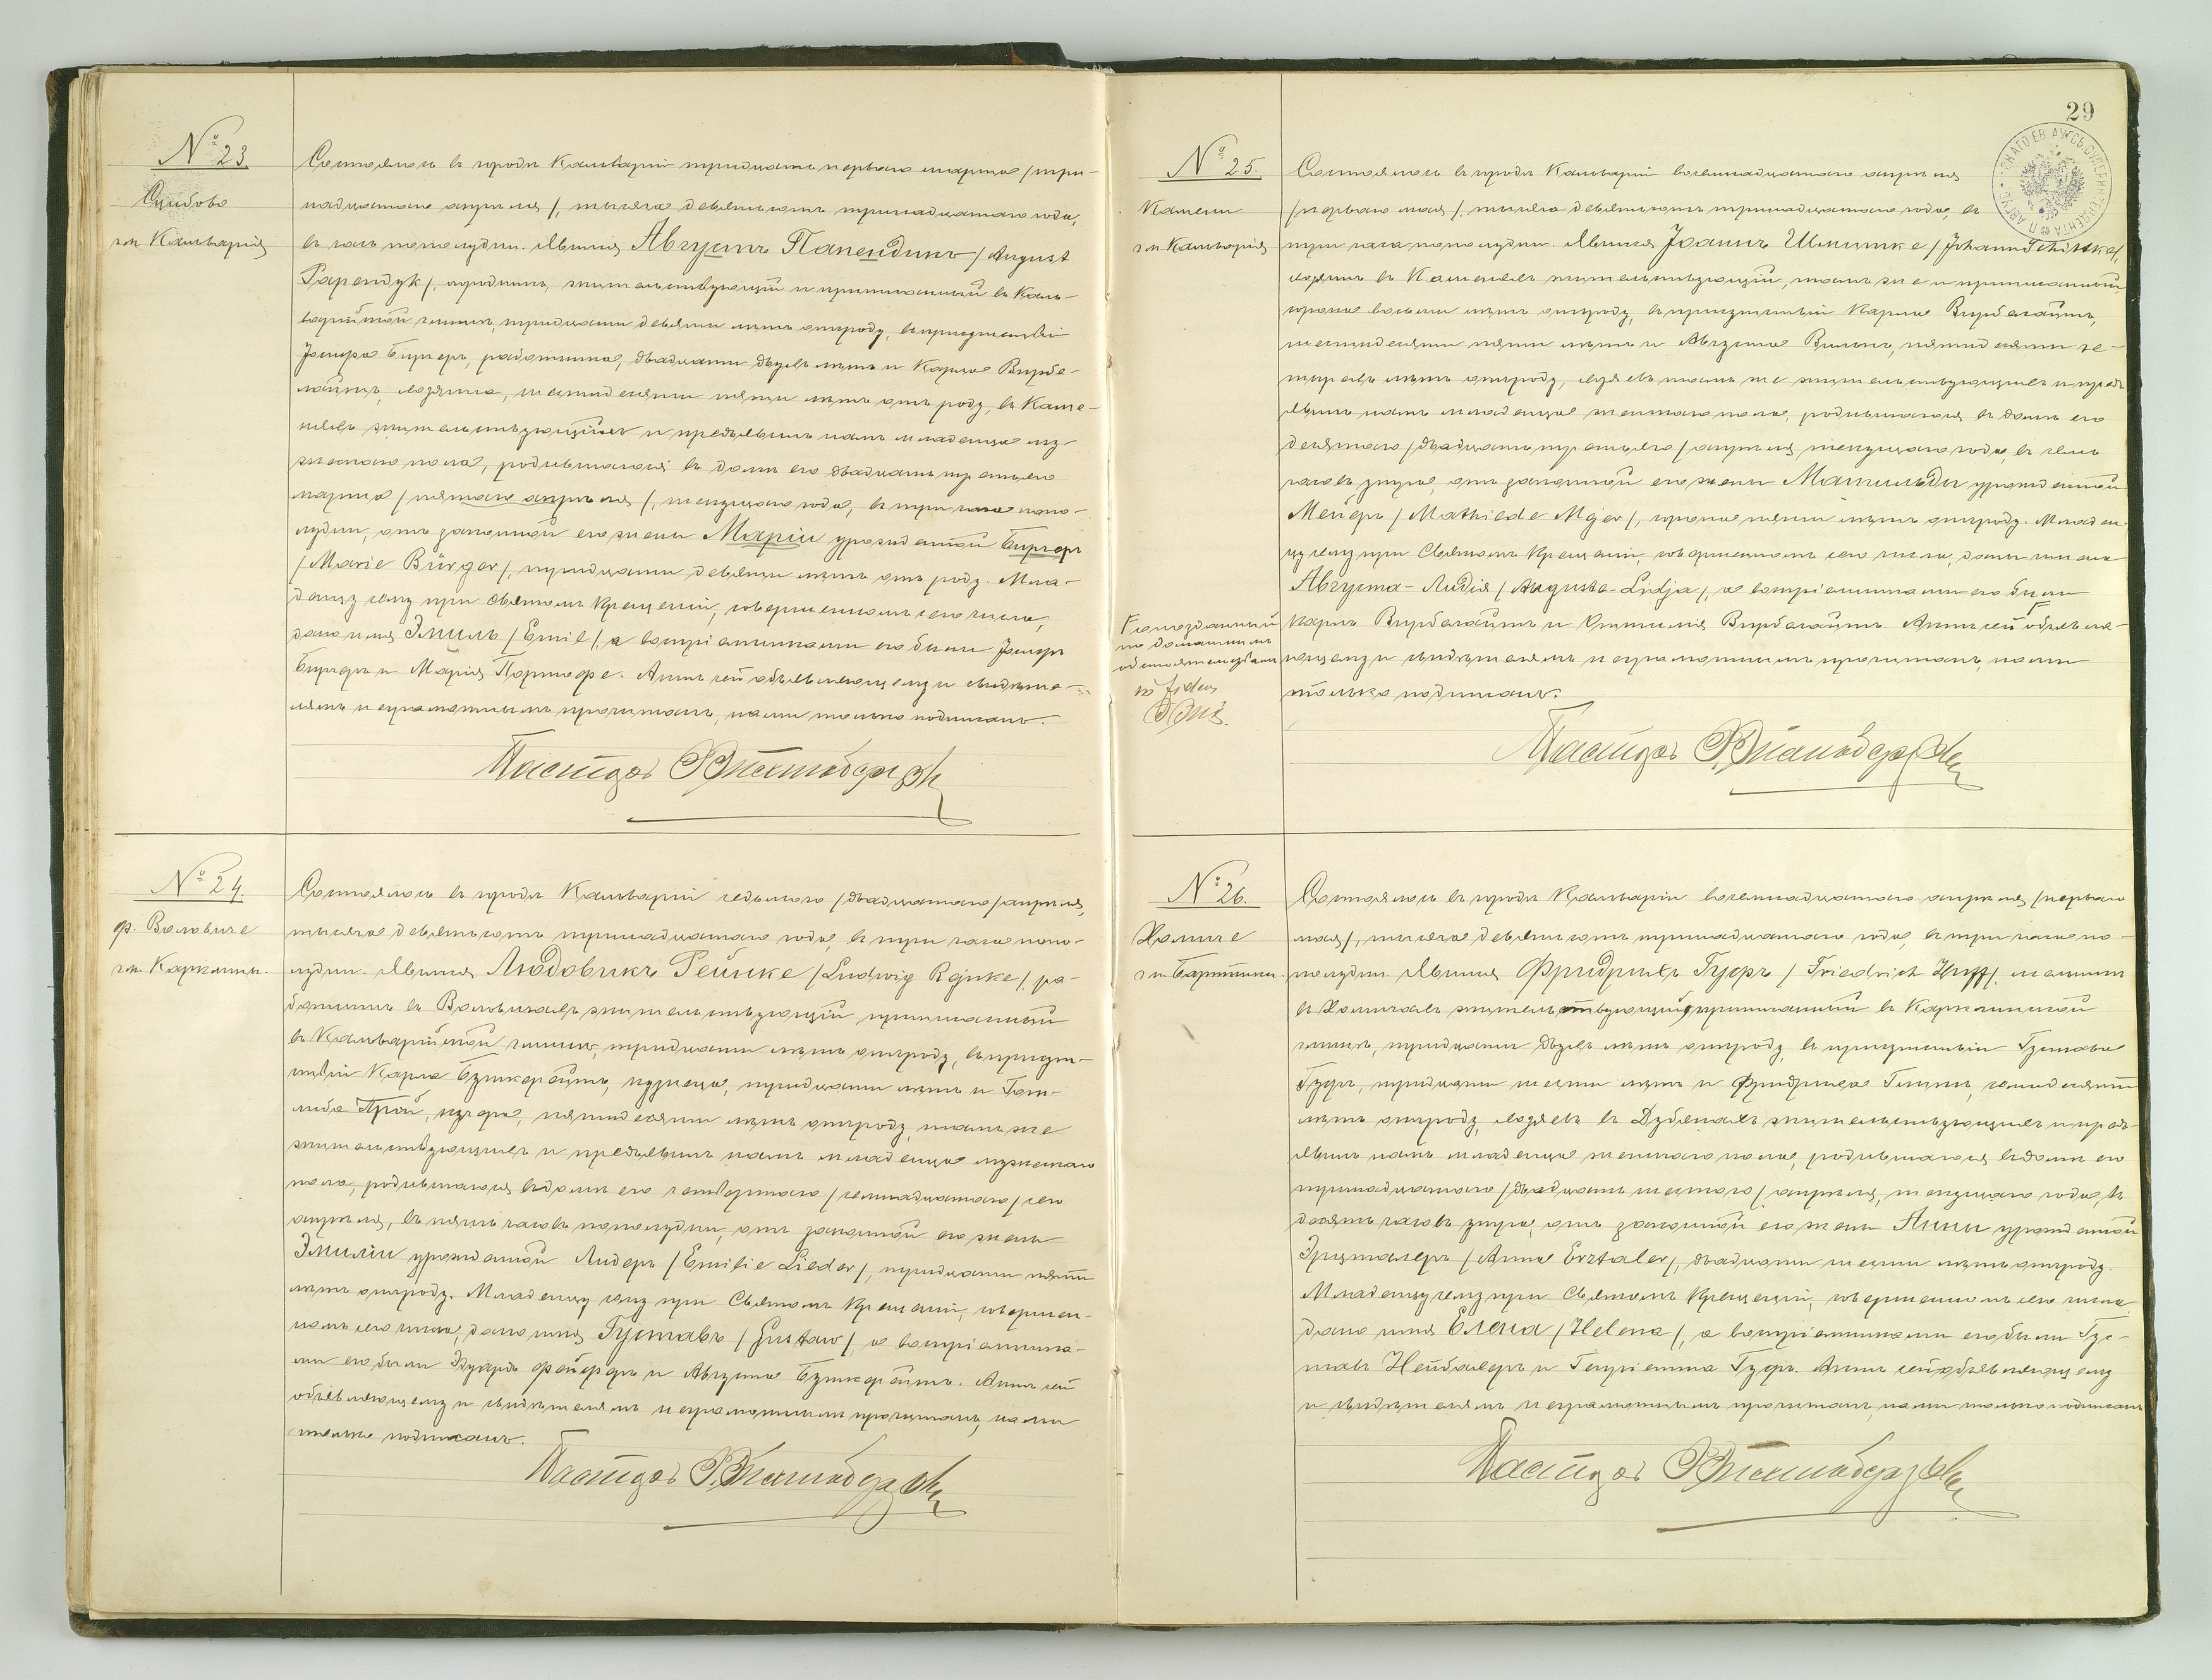 № 23
Сцибово
гм. Кальварія
Состоялось въ городѣ Кальваріи тридцать перваго марта /три-
надцатаго апрѣля/, тысяча девятьсотъ тринадцатаго года,
въ часъ пополудни. Явился Августъ Папендикъ / August
Papendyk /, жительствующій и приписанный въ Каль-
варійской гминѣ, тридцати девяти лѣтъ отъ роду, въ присутствіи
Іосифа Биргеръ, работника, двадцати двухъ лѣтъ и Карла Вирба-
лайтъ, хозяина, шестидесяти пяти лѣтъ отъ роду, въ Каме-
няхъ жительствующихъ и предъявилъ намъ младенца му-
жескаго пола, родившагося въ домѣ его двадцать третьяго
марта / пятаго апрѣля /, текущаго года, въ три часа попо-
лудни, отъ законной его жены Маріи урожденной Биргеръ
/ Marie Bürger /, тридцати девяти лѣтъ отъ роду. Мла-
денцу сему при Святомъ Крещеніи, совершенномъ сего числа,
дано имя Эмиль / Emil /, а воспріемниками его были Іосифъ
Биргеръ и Марія Портофе. Актъ сей объявляющему и свидѣте-
лямъ неграмотнымъ прочитанъ, нами только подписанъ.
Пасторъ
№ 24.
ф. Воловиче
гм. Карклины.
Состоялось въ городѣ Кальваріи седьмого /двадцатаго/ апрѣля,
тысяча девятьсотъ тринадцатаго года, въ три часа попо-
лудни. Явился Людовикъ Рейнке / Ludwig Rejnke /, ра-
ботникъ въ Воловичахъ жительствующій приписанный
въ Кальварійской гминѣ, тридцати лѣтъ отъ роду, въ присут-
ствіи Карла Бушкерайтъ, кузнеца, тридцати лѣтъ и Гот-
либа Прой, кучера, пятидесяти лѣтъ отъ роду, тамъ же
жительствующихъ и предъявилъ намъ младенца мужескаго
пола, родившагося въ домѣ его четвертаго /семнадцатаго/ сего
апрѣля, въ пять часовъ пополудни, отъ законной его жены
Эмиліи урожденной Лидеръ / Emilie Lieder /, тридцати пяти
лѣтъ отъ роду. Младенцу сему при Святомъ Крещеніи, совершен-
номъ сего числа, дано имя Густавъ / Gustaw /, а воспріемника-
ми его были Эдуардъ Фейферъ и Августа Бушкерайтъ. Актъ сей
объявляющему и свидѣтелямъ неграмотнымъ прочитанъ, нами
только подписанъ.
Пасторъ
29
№ 25.
Камени
гм. Кальварія
Состоялось въ городѣ Кальваріи восемнадцатаго апрѣля
/перваго мая/, тысяча девятьсотъ тринадцатаго года, въ
три часа пополудни. Явился Іоаннъ Шишке / Johann Schischke /,
хозяинъ въ Каменяхъ жительствующій, тамъ же и приписанный,
сорока восьми лѣтъ отъ роду, въ присутствіи Карла Вирбалайтъ,
шестидесяти пяти лѣтъ и Августа Вилькъ, пятидесяти че-
тырехъ лѣтъ отъ роду, хозяевъ тамъ же жительствующихъ и предъ-
явилъ намъ младенца женскаго пола, родившагося въ домѣ его
десятаго /двадцать третьяго/ апрѣля текущаго года, въ семь
часовъ утра, отъ законной его жены Матильды урожденной
Мейеръ / Mathilde Mejer /, сорока пяти лѣтъ отъ роду. Младен-
цу сему при Святомъ Крещеніи, совершенномъ сего числа, даны имена
Августа-Лидія / Auguste-Lidja /, а воспріемниками его были
Карлъ Вирбалайтъ и Оттилія Вирбалайтъ. Актъ сей объявля-
ющему и свидѣтелямъ неграмотнымъ прочитанъ, нами
только подписанъ.
Г запозданный
по домашнимъ
обстоятельствамъ
Пасторъ
№ 26.
Хомиче
гм. Бартники.
Состоялось въ городѣ Кальваріи восемнадцатаго апрѣля /перваго
мая/, тысяча девятьсотъ тринадцатаго года, въ три часа по-
полудни. Явился Фридрихъ Гуфъ / Friedrich Huff /,
въ Хомичахъ жительствующій приписанный въ Карклинской
гминѣ, тридцати двухъ лѣтъ отъ роду, въ присутствіи Густава
Гуфъ, тридцати шести лѣтъ и Фридриха
лѣтъ отъ роду, хозяевъ въ Дубенахъ жительствующихъ и предъ-
явилъ намъ младенца женскаго пола, родившагося въ домѣ его
тринадцатаго /двадцать шестого/ апрѣля, текущаго года, въ
десять часовъ утра, отъ законной его жены Анны урожденной
Эрцталеръ / Anna Erztaler /, двадцати шести лѣтъ отъ роду.
Младенцу сему при Святомъ Крещеніи, совершенномъ сего числа,
дано имя Елена / Helena /, а воспріемниками его были Гу-
ставъ Нейбахеръ и Генріетта Гуфъ. Актъ сей объявляющему
и свидѣтелямъ неграмотнымъ прочитанъ, нами только подписанъ
Пасторъ